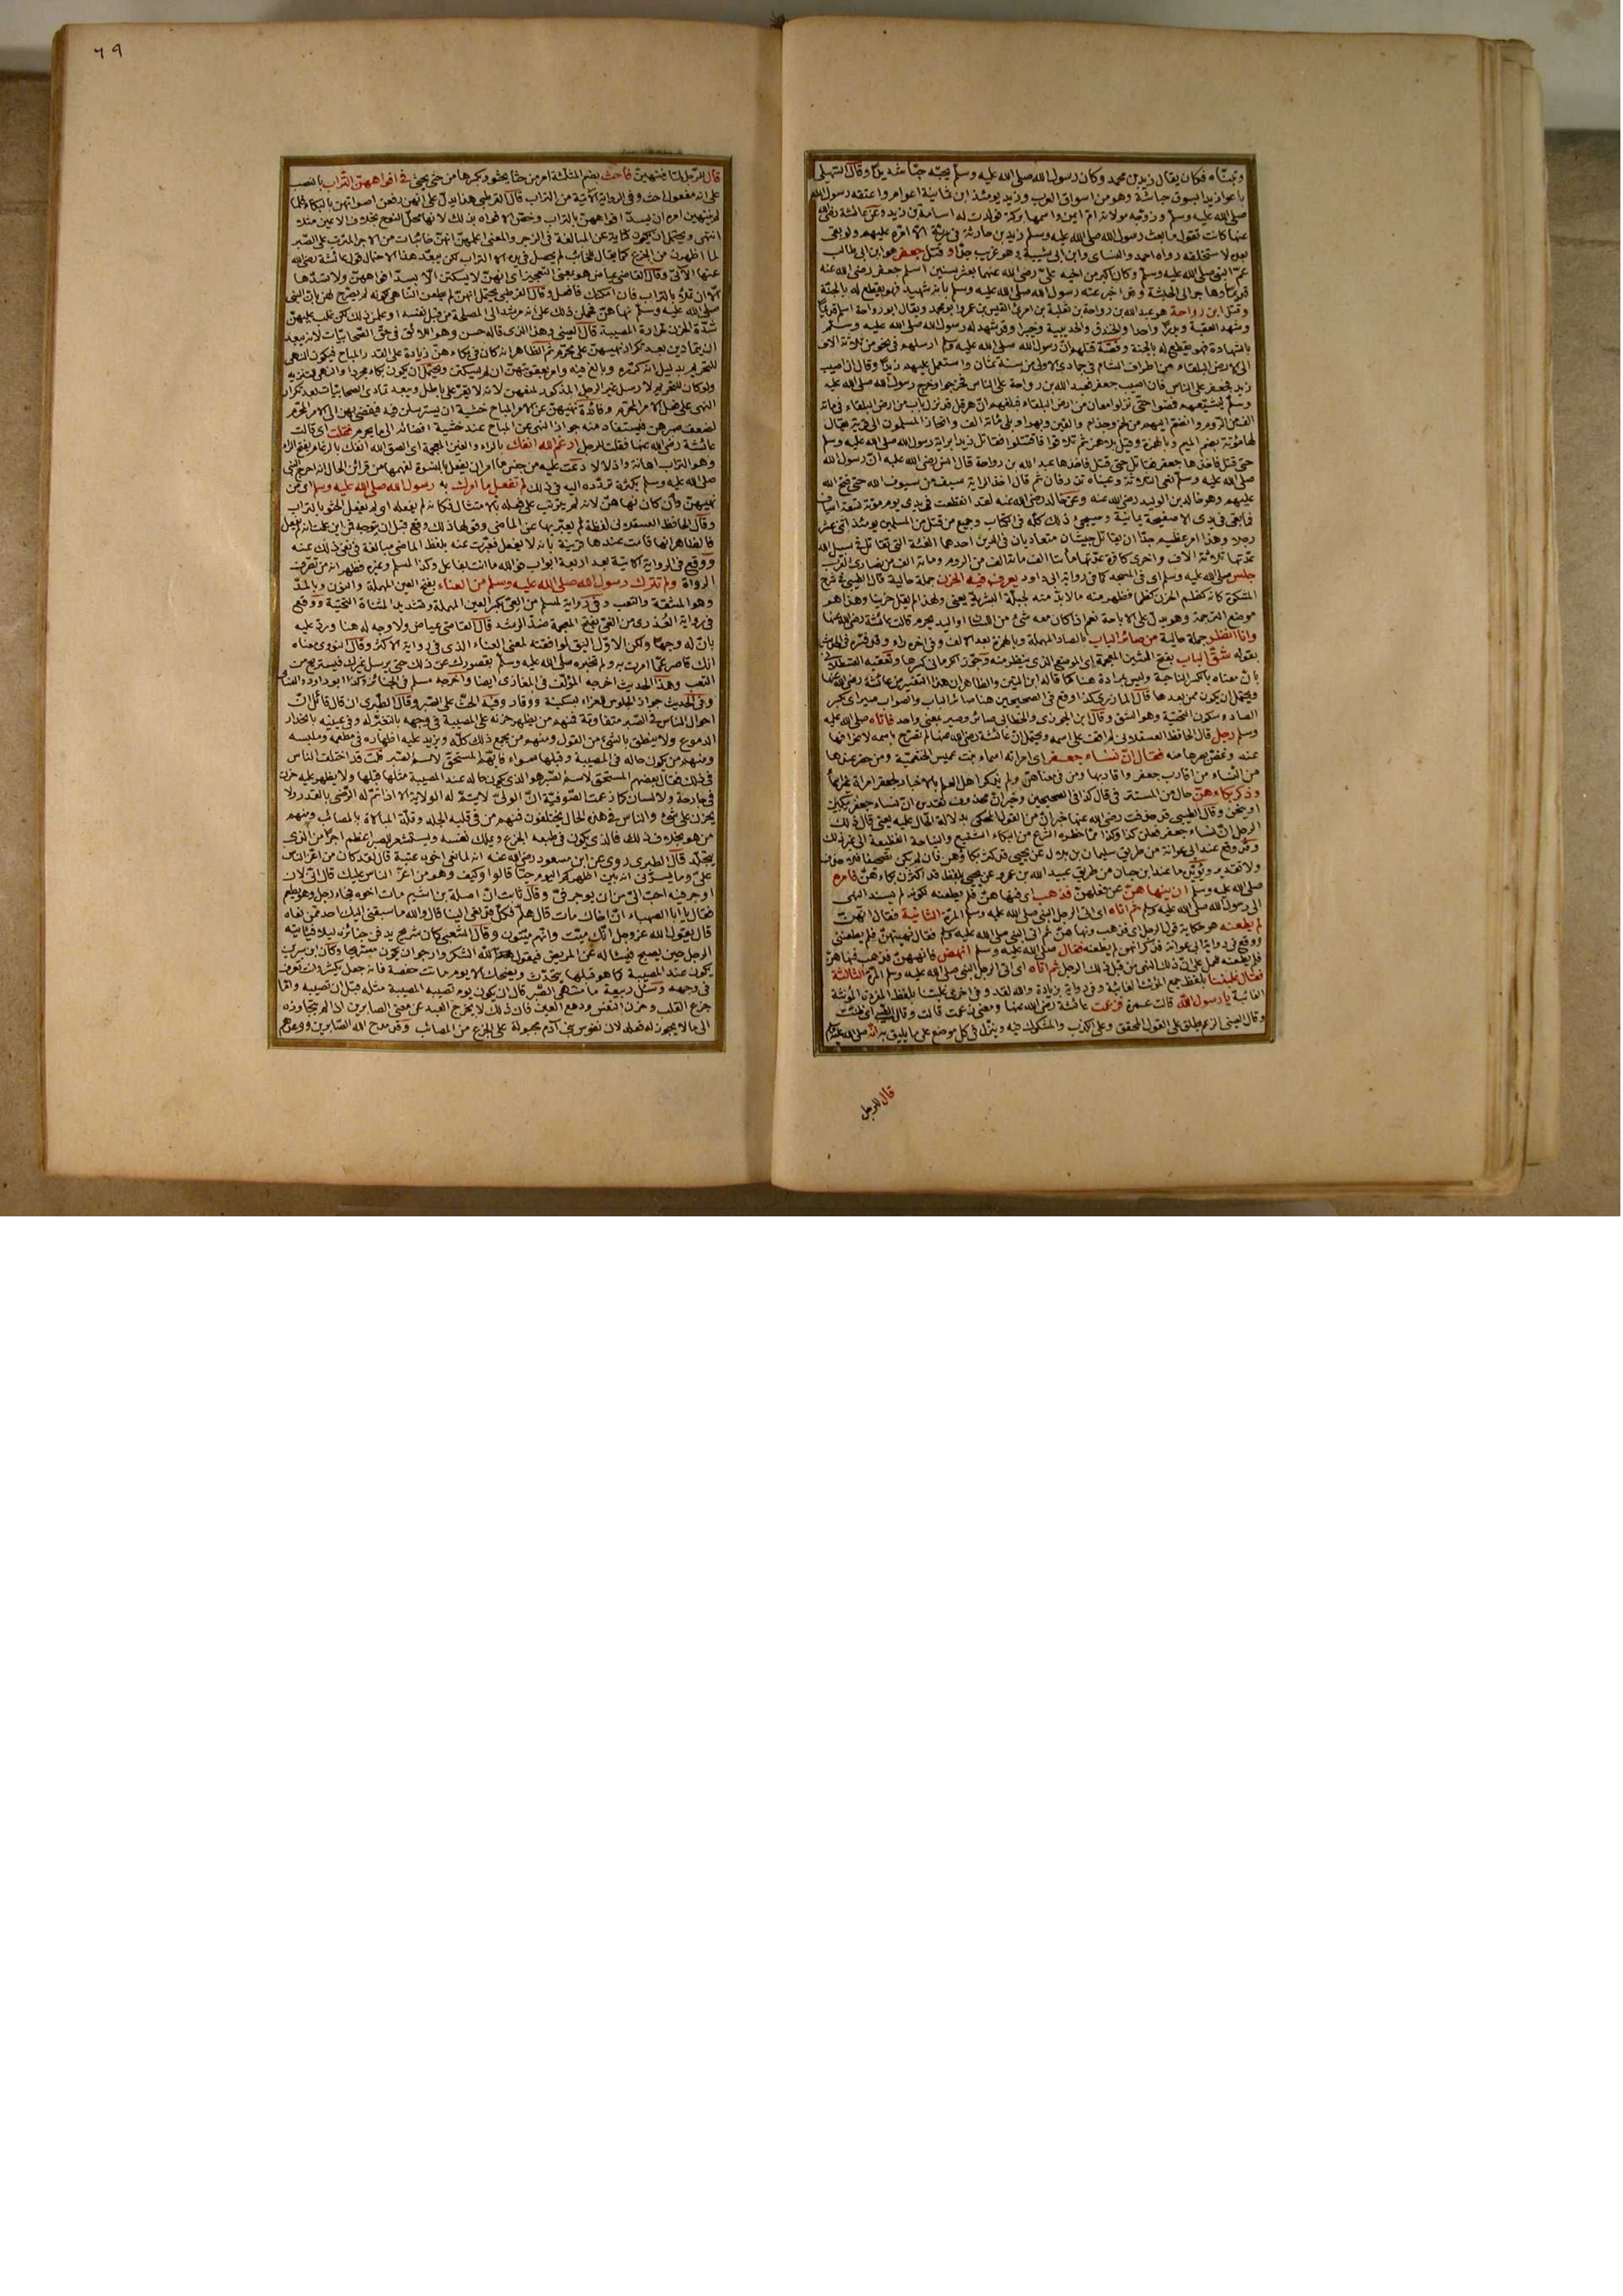 وتبناه فكان يقال زيد بن محمد وكان رسول الله صلى الله عليه وسلم يحبه حبا شديدا وقال السهيلى
باعوا زيدا بسوق حباشة وهو من اسواق العرب وزيد يومئذ ابن ثمانية اعوام واعتقه رسول الله
صلى الله عليه وسلم وزوجه مولاته ام ايمن واسمها بركة فولدت له اسامة بن زيد وعن عائشة رضى الله
عنها كانت تقول ما بعث رسول الله صلى الله عليه وسلم زيد بن حارثة فى سرية الا امره عليهم ولو بقى
بعده لاستخلفه رواه احمد والنسائى وابن ابى شيبة وهو غريب جدا وقتل جعفر هو ابن ابى طالب
عم النبى صلى الله عليه وسلم وكان اكبر من اخيه على رضى الله عنهما بعشر سنين اسلم جعفر رضى الله عنه
قديما وهاجر الى الحبشة وقد اخبر عنه رسول الله صلى الله عليه وسلم بانه شهيد فهو يقطع له بالجنة
وقتل ابن رواحة هو عبد الله بن رواحة بن ثعلبة بن امرئ القيس بن عمرو ابو محمد ويقال ابو رواحة اسلم قديما
وشهد العقبة وبدرا واحدا والخندق والحديبية وخيبر وقد شهد له رسول الله صلى الله عليه وسلم
بالشهادة فهو يقطع له بالجنة وقصة قتلهم ان رسول الله صلى الله عليه وسلم ارسلهم فى نحو من ثلاثة الاف
الى الارض البلقاء من اطراف الشام فى جمادى الاولى من سنة ثمان واستعمل عليهم زيدا وقال ان اصيب
زيد فجعفر على الناس فان اصيب جعفر فعبد الله بن رواحة على الناس فخرجوا وخرج رسول الله صلى الله عليه
وسلم يشيعهم فمضوا حتى نزلوا معان من ارض البلقاء فبلغهم ان هرقل قد نزل باب من ارض البلقاء فى مائة
الف من الروم وانضم اليهم من لخم وجذام والقين وبهراء وبلى مائة الف وانحاز المسلمون الى قرية يقال
لها مؤتة بضم الميم وبالهمزة وقيل بلا همز ثم تلاقوا فاقتتلوا فقاتل زيد براية رسول الله صلى الله عليه وسلم
حتى قتل فاخذها جعفر فقاتل حتى قتل فاخذها عبد الله بن رواحة قال انس رضى الله عليه ان رسول الله
صلى الله عليه وسلم نعى الثلاثة وعيناه تذرفان ثم قال اخذ الراية سيف من سيوف الله حتى فتح الله
عليهم وهو خالد بن الوليد رضى الله عنه وعن خالد رضى الله عنه لقد انقطعت فى يدى يوم مؤتة تسعة اسياف
فما بقى فى يدى الا صفيحة يمانية وسيجئ ذلك كله فى الكتاب وجميع من قتل من المسلمين يومئذ اثنى عشر
رجلا وهذا امر عظيم جدا ان يقاتل جيشان متعاديان فى الدين احدهما الفئة التى تقاتل فى سبيل الله
عدتها ثلاثة الاف واخرى كافرة عدتها مائتا الف مائة الف من الروم ومائة الف من نصارى العرب
جلس صلى الله عليه وسلم اى فى المسجد كما فى رواية ابى داود يعرف فيه الحزن جملة حالية قال الطيبى فى شرح
المشكوة كانه كظم الحزن كظما فظهر منه ما لا بد منه لجبلة البشرية يعنى ولهذا لم يقل حزينا وهذا هو
موضع الترجمة وهو يدل على الاباحة نعم اذا كان معه شئ من اللسان او اليد يحرم قالت عائشة رضى الله عنها
وانا انظر جملة حالية من صائر الباب بالصاد المهملة وبالهمزة بعد الالف وفى اخره راء وقد فسره فى الحديث
بقوله شق الباب بفتح الشين المعجمة اى الموضع الذى ينظر منه وجوز الكرمانى كسرها وتعقبه القسطلانى
بان معناه بالكسر الناحية وليس بمرادة هنا كما قاله ابن التين والظاهر ان هذا التفسير من عائشة رضى الله عنها
ويحتمل ان يكون ممن بعدها قال المازرى كذا وقع فى الصحيحين هنا صائر الباب والصواب صير اى بكسر
الصاد وسكون التحتية وهو الشق وقال ابن الجوزى والخطابى صائر وصير بمعنى واحد فاتاه صلى الله عليه
وسلم رجل قال الحافظ العسقلانى لم اقف على اسمه ويحتمل ان عائشة رضى الله عنها لم تصرح باسمه لانحرافها
عنه وغض بصرها منه فقال ان نساء جعفر اى امراته اسماء بنت عميس الخثعمية ومن حضر عندها
من النساء من اقارب جعفر واقاربها ومن فى معناهن ولم يذكر اهل العلم بالاخبار لجعفر امراة غير اسماء
وذكر بكاءهن حال من المستتر فى قال كذا فى الصحيحين وخبر ان محذوف تقديره ان نساء جعفر يبكين
او ينحن وقال الطيبى قد حذفت رضى الله عنها خبر ان من القول المحكى بدلالة الحال عليه يعنى قال ذلك
الرجل ان نساء جعفر فعلن كذا وكذا مما حظره الشرع من البكاء الشنيع والنياحة الفظيعة الى غير ذلك
وقد وقع عند ابى عوانة من طريق سليمان بن بلال عن يحيى قد كثر بكاؤهن فان لم يكن تصحيفا فلا حذف
ولا تقدير ويؤيده ما عند ابن حبان من طريق عبيد الله بن عمرو عن يحيى بلفظ قد اكثرن بكاءهن فامره
صلى الله عليه وسلم ان ينهاهن عن فعلهن فذهب اى فنهاهن فلم يطعنه لكونه لم يسند النهى
الى رسول الله صلى الله عليه وسلم ثم اتاه اى اتى الرجل النبى صلى الله عليه وسلم المرة الثانية فقال انهن
لم يطعنه هو حكاية قول الرجل اى فذهب ونهاهن ثم اتى النبى صلى الله عليه وسلم فقال نهيتهن فلم يطعننى
ووقع فى رواية ابى عوانة فذكر انهن لم يطعنه فقال صلى الله عليه وسلم انهض فانههن فذهب فنهاهن
فلم يطعنه فحمل على ان ذلك النهى من قبل ذلك الرجل ثم اتاه اى اتى الرجل النبى صلى الله عليه وسلم المرة الثالثة
فقال غلبننا بلفظ جمع المؤنث الغائبة وفى رواية بزيادة والله لقد وفى اخرى غلبتنا بلفظ المفردة المؤنثة
الغائبة يا رسول الله قالت عمرة فزعمت عائشة رضى الله عنها ومعنى زعمت قالت وقال الطيبى اى ظننت
وقال العينى الزعم يطلق على القول المحقق وعلى الكذب والمشكوك فيه وينزل فى كل موضع على ما يليق به انه صلى الله عليه وسلم
قال للرجل
٦٩
قال للرجل لما لم ينتهين فاحث بضم المثلثة امر من حثا يحثو وبكسرها من حثى يحثى فى افواههن التراب بالنصب
على انه مفعول احث وفى الرواية الآتية من التراب قال القرطبى هذا يدل على انهن رفعن اصواتهن بالبكاء فلما
لم ينتهين امره ان يسد افواههن بالتراب وخص الافواه بذلك لانها محل النوح بخلاف الاعين مثلا
انتهى ويحتمل ان يكون كناية عن المبالغة فى الزجر والمعنى اعلمهن انهن خائبات من الاجر المترتب على الصبر
لما اظهرن من الجزع كما يقال للخائب لم يحصل فى يده الا التراب لكن يبعد هذا الاحتمال قول عائشة رضى الله
عنها الآتى وقال القاضى عياض هو بمعنى التعجيز اى انهن لا يسكتن الا بسد افواههن ولا تسدها
الا ان تملأ بالتراب فان امكنك فافعل وقال القرطبى يحتمل انهن لم يطعن الناهى لكونه لم يصرح لهن بان النبى
صلى الله عليه وسلم نهاهن فحملن ذلك على انه مرشد الى المصلحة من قبل نفسه او علمن ذلك لكن غلب عليهن
شدة الحزن لحرارة المصيبة قال العينى وهذا الذى قاله حسن وهو اللائق فى حق الصحابيات لانه يبعد
ان يتمادين بعد تكرار نهيهن على محرم ثم الظاهر انه كان فى بكاءهن زيادة على القدر المباح فيكون النهى
للتحريم بدليل انه كرره وبالغ فيه وامر بعقوبتهن ان لم يسكتن ويحتمل ان يكون بكاء مجردا والنهى للتنزيه
ولو كان للتحريم لارسل غير الرجل المذكور لمنعهن لانه لا يقر على باطل ويبعد تمادى الصحابيات بعد تكرار
النهى على فعل الامر المحرم وفائدة نهيهن عن الامر المباح خشية ان يسترسلن فيه فيفضى بهن الى الامر المحرم
لضعف صبرهن فيستفاد منه جواز النهى عن المباح عند خشية افضائه الى ما يحرم فقلت اى قالت
عائشة رضى الله عنها فقلت للرجل ارغم الله انفك بالراء والغين المعجمة اى الصق الله انفك بالرغام بفتح الراء
وهو التراب اهانة واذلالا دعت عليه من جنس ما امر ان يفعل بالنسوة لفهمها من قرائن الحال انه احرج النبى
صلى الله عليه وسلم بكثرة تردده اليه فى ذلك لم تفعل ما امرك به رسول الله صلى الله عليه وسلم اى من
نهيهن وان كان نهاهن لانه لم يترتب على فعله الامتثال فكانه لم يفعله او لم يفعل الحثو بالتراب
وقال الحافظ العسقلانى لفظة لم يعبر بها عن الماضى وقولها ذلك وقع قبل ان يتوجه فمن اين علمت انه لم يفعل
فالظاهر انها قامت عندها قرينة بانه لا يفعل فعبرت عنه بلفظ الماضى مبالغة فى نفى ذلك عنه
ووقع فى الرواية الآتية بعد اربعة ابواب فوالله ما انت بفاعل وكذا لمسلم وغيره فظهر انه من تصرف
الرواة ولم تترك رسول الله صلى الله عليه وسلم من العناء بفتح العين المهملة والنون وبالمد
وهو المشقة والتعب وفى رواية لمسلم من العى بكسر العين المهملة وتشديد المثناة التحتية ووقع
فى رواية العذرى من الغى بفتح المعجمة ضد الرشد قال القاضى عياض ولا وجه له هنا ورد عليه
بان له وجها ولكن الاول اليق لموافقته لمعنى العناء الذى فى رواية الاكثر وقال النووى معناه
انك قاصر عما امرت به ولم تخبره صلى الله عليه وسلم بقصورك عن ذلك حتى يرسل غيرك فيستريح من
التعب وهذا الحديث اخرجه المؤلف فى المغازى ايضا واخرجه مسلم فى الجنائز وكذا ابو داود والنسائى
وفى الحديث جواز الجلوس للعزاء بسكينة ووقار وفيه الحث على الصبر وقال الطبرى ان قال قائل ان
احوال الناس فى الصبر متفاوتة فمنهم من يظهر حزنه على المصيبة فى وجهه بالتغير له وفى عينيه بانحدار
الدموع ولا ينطق بالشئ من القول ومنهم من يجمع ذلك كله ويزيد عليه اظهاره فى مطعمه وملبسه
ومنهم من يكون حاله فى المصيبة وقبلها سواء فايهم المستحق لاسم الصبر قلت قد اختلف الناس
فى ذلك فقال بعضهم المستحق لاسم الصبر هو الذى يكون حاله عند المصيبة مثلها قبلها ولا يظهر عليه حزن
فى جارحة ولا لسان كما زعمت الصوفية ان الولى لا يتم له الولاية الا اذا تم له الرضى بالقدر ولا
يحزن على شئ والناس فى هذه الحال يختلفون فمنهم من فى قلبه الجلد وقلة المبالاة بالمصائب ومنهم
من هو بخلاف ذلك فالذى يكون فى طبعه الجزع ويملك نفسه ويستشعر الصبر اعظم اجرا من الذى
يتجلد قال الطبرى روى عن ابن مسعود رضى الله عنه انه لما نعى اخيه عتبة قال لقد كان من اعز الناس
على وما يسرنى انه بين اظهركم اليوم حيا قالوا وكيف وهو من اعز الناس عليك قال انى لان
اوجر فيه احب الى من ان يوجر فى وقال ثابت ان صلة بن اشيم مات اخوه فجاء رجل وهو يطعم
فقال يا ابا الصهباء ان اخاك مات قال هلم فكل فقد نعى الينا قال والله ما سبقنى اليك احد فمن نعاه
قال يقول الله عز وجل انك ميت وانهم ميتون وقال الشعبى كان شريح يدفن جنائزه ليلا فياتيه
الرجل حين يصبح فيسأله عن المريض فيقول هدأ لله الشكر وارجو ان يكون مستريحا وكان ابن سيرين
يكون عند المصيبة كما هو قبلها يتحدث ويضحك الا يوم ماتت حفصة فانه جعل يكشر وانت تعرف
فى وجهه وسئل ربيعة ما منتهى الصبر قال ان يكون يوم تصيبه المصيبة مثله قبل ان تصيبه واما
جزع القلب وحزن النفس ودمع العين فان ذلك لا يخرج العبد عن معنى الصابرين اذا لم يتجاوزه
الى ما لا يجوز له فعله لان نفوس بنى آدم مجبولة على الجزع من المصائب وقد مدح الله الصابرين ووعدهم